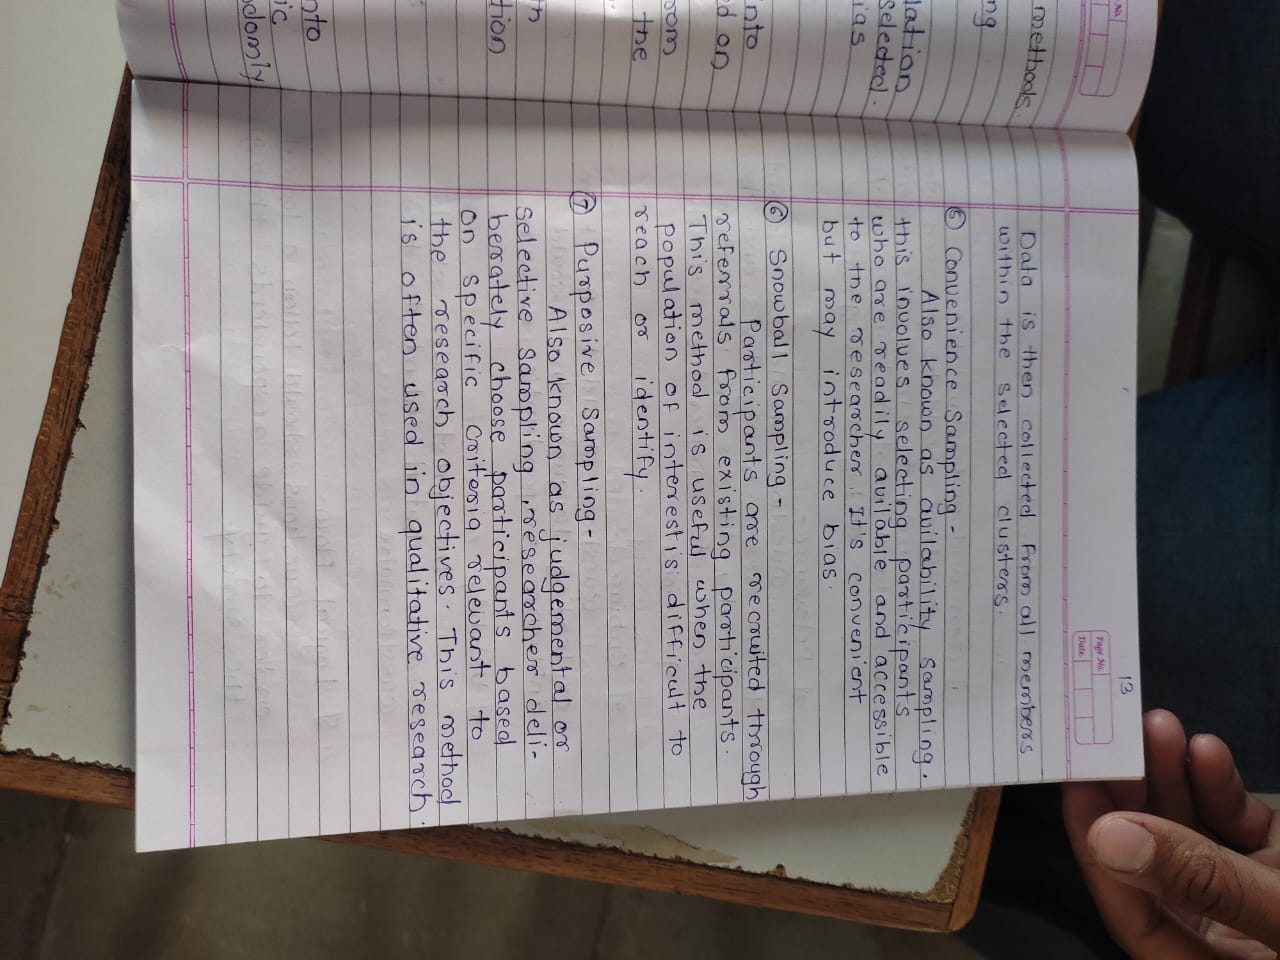 No.
methods.
ng
lation
selected.
ias
nto
d on
rom
the
th
tion
nto
ic
domly
13
Page No.
Date
Data is then collected from all members
within the selected clusters.
⑤ Convenience Sampling -
Also known as avilability sampling.
this involves selecting participants
who are readily avilable and accessible
to the researcher. It's convenient
but may introduce bias.
⑥ Snowball Sampling -
Participants are recruited through
referrals from existing participants.
This method is useful when the
population of interest is difficult to
reach or identify.
⑦ Purposive Sampling -
Also known as judgemental or
selective sampling, researcher deli-
berately choose participants based
on specific criteria relevant to
the research objectives. This method
is often used in qualitative research.